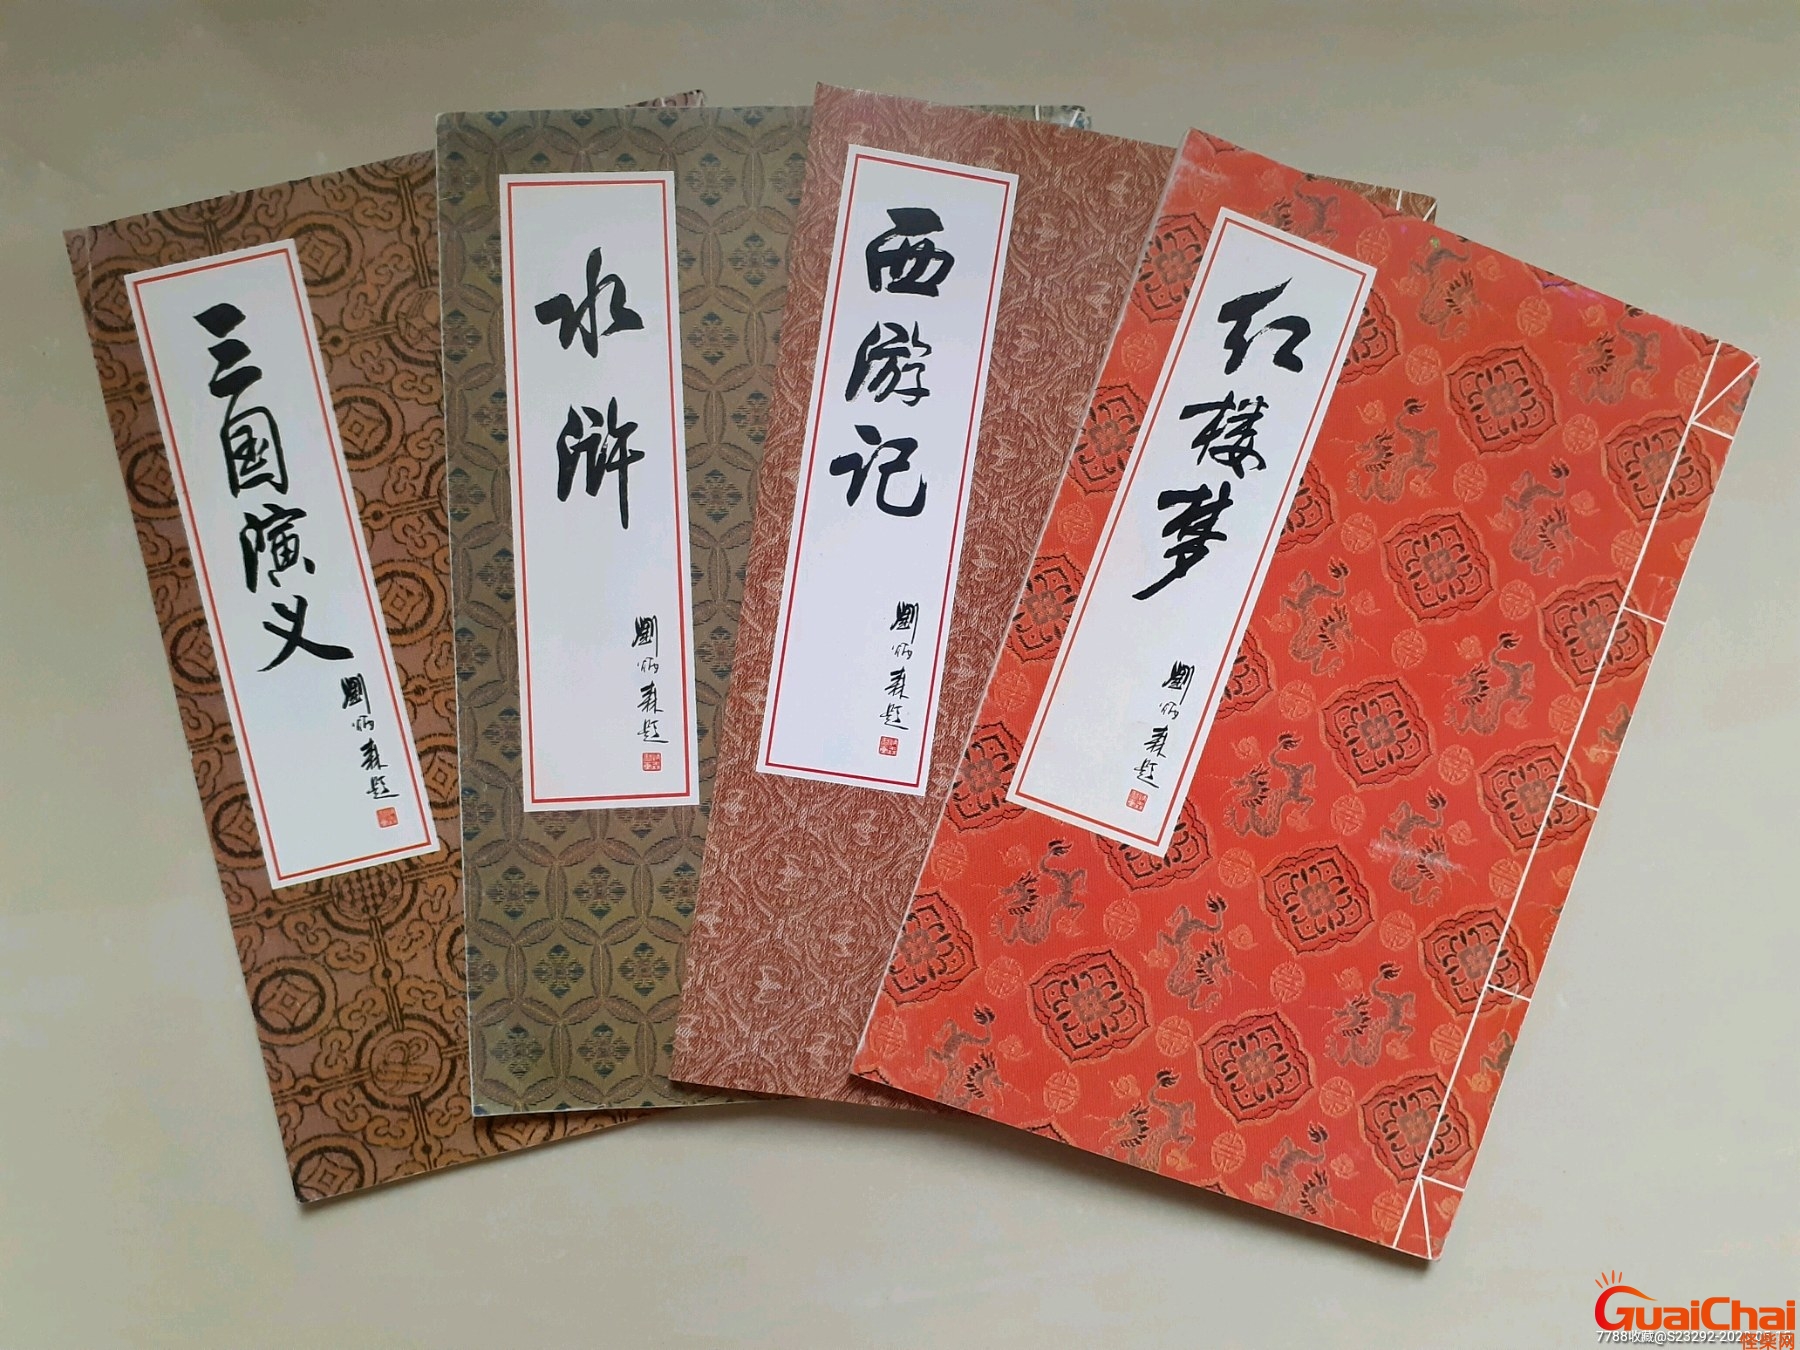 三国演义
劉炳森题
水浒
劉炳森题
西游记
劉炳森题
红楼梦
劉炳森题
GuaiChai
怪柴网
7788收藏@S23292-202